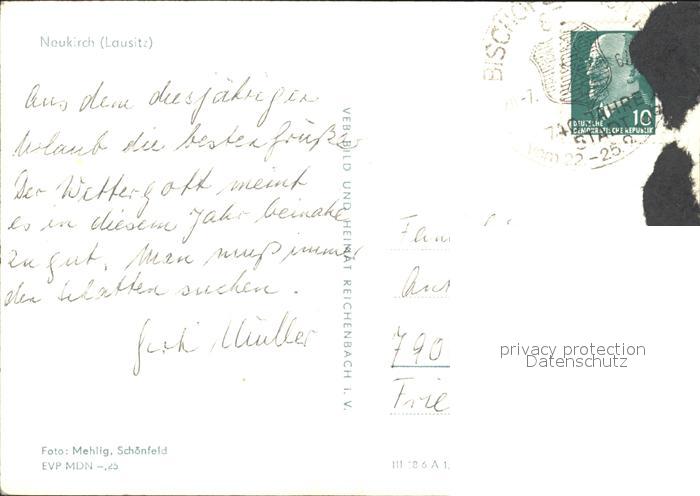 Neukirch (Lausitz)
Aus dem diesjährigen
Urlaub die besten Grüße
Der Wettergott meint
es in diesem Jahr beinahe
zu gut. Man muß immer
den Schatten suchen.
Müller
VEB BILD UND HEIMAT REICHENBACH i. V.
Foto: Mehlig, Schönfeld
EVP MDN –,25
BISCHOFS
10
DEUTSCHE
DEMOKRATISCHE REPUBLIK
740 JAHRE
STADT
vom 22.–25.
Fam
790
Frie
III 18 6 A 1
privacy protection
Datenschutz